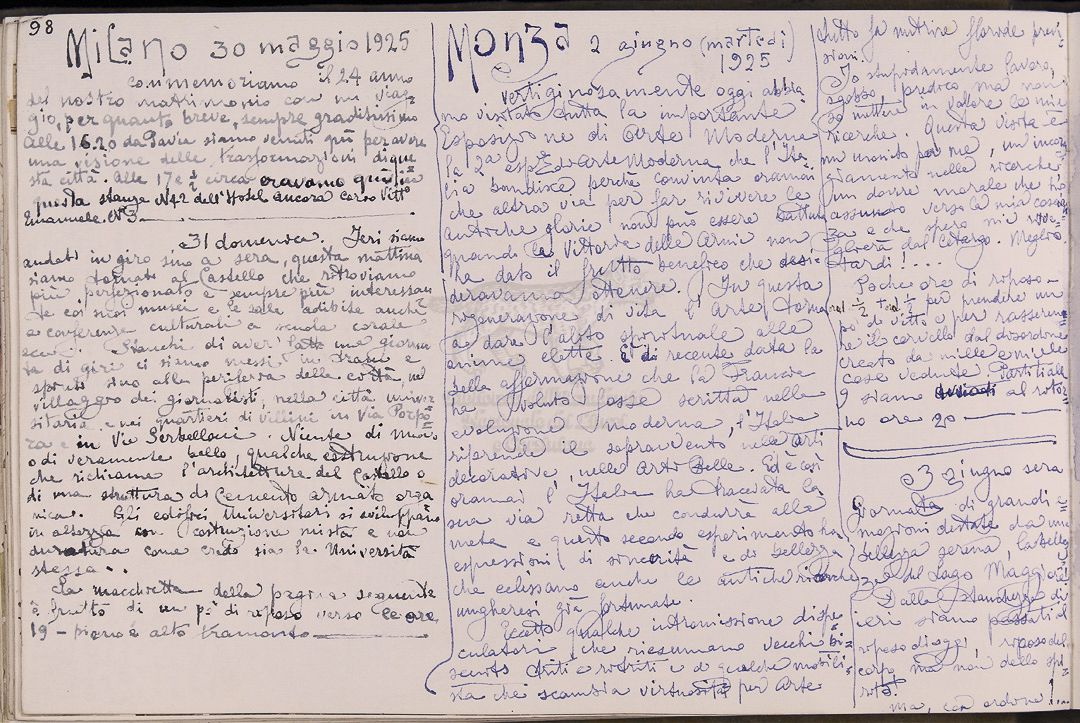 98
Milano 30 maggio 1925
commemoriamo il 24 anno
del nostro matrimonio con un viag=
gio, per quanto breve, sempre graditissimo
Alle 16.20 da Pavia siamo venuti qui per avere
una visione delle trasformazioni di que
sta città. Alle 17 e ½ circa eravamo qui in
questa stanza N 42 dell'Hotel ancora corso Vitt
Emanuele. N 3
31 domenica. Ieri siamo
andati in giro sino a sera, questa mattina
siamo tornati al Castello che ritroviamo
più perfezionato e sempre più interessan
te coi suoi musei e le sale adibite anche
a conferenze culturali a scuola corale
ecc. Stanchi di aver fatto una giorna
ta di giri ci siamo messi in tram e
spinti sino alla periferia della città, nel
villaggio dei giornalisti, nella città univer
sitaria e nei quartieri di villini in Via Porpo
ra e in Via Serbelloni. Niente di nuovo
o di veramente bello, qualche costruzione
che richiama l'architettura del Castello o
di una struttura di Cemento armato orga
nica. Gli edifici Universitari si sviluppano
in altezza con costruzione mista e non
duratura come credo sia la Università
stessa..
La macchietta della pagina seguente
è frutto di un pò di riposo verso le ore
19 - pieno e alto tramonto
Monza 2 giugno (martedì)
1925
vertiginosamente oggi abbia
mo visitato tutta la importante
Esposizione di Arte Moderna
la 2a espo Arte Moderna che l'Ita
lia bandisce perchè convinta oramai
che altra via per far rivivere le
antiche glorie non può essere battuta
quando la Vittoria delle Armi non
ha dato il frutto benefico che desi=
deravamo ottenere. In questa
rigenerazione di vita l'Arte torna
a dare l'alito spirituale alle
anime elette. È di recente data la
bella affermazione che la Francia
ha voluto fosse scritta nella
evoluzione moderna, l'Italia
riprende il sopravvento nelle Arti
decorative, nelle Arti Belle. Ed è così
oramai l'Italia ha tracciata la
sua via retta che condurrà alla
meta e questo secondo esperimento ha
espressioni di sincerità e di bellezza
che eclissano anche le antiche
ungheresi già fortunate.
Eccetto qualche intromissione di spe
culatori, che riesumano vecchi bi=
scotti triti e ritriti e di qualche mobili
sta che scambia virtuosità per Arte
tutto fa nutrire floride previ=
sioni.
Io stupidamente lavoro,
sgobbo predico, ma non
so mettere in valore le mie
ricerche. Questa visita è
un monito per me, un'incorag
giamento nelle ricerche,
un dovere morale che ho
assunto verso la mia coscien
za e che spero mi
dal letargo. Meglio
tardi!...
Poche ore di riposo -
nel ½ + nel ½ per prendere un
po' di vitto e per rassere
il cervello dal disordine
creato da mille e mille
cose vedute. Partiti alle
9 siamo al ritor
no ore 20
3 giugno sera
Giornata di grandi e
mozioni destate da una
bellezza serena, la bellez
za del Lago Maggiore
Dalla stanchezza di
ieri siamo passati al
riposo di oggi, riposo del
corpo ma non dello spi=
rito!
ma, con ordine!...